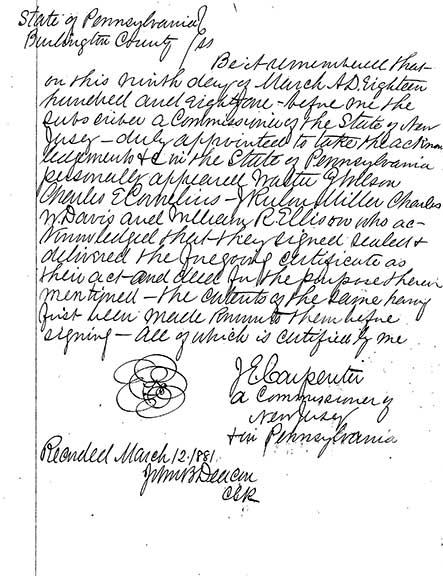 State of Pennsylvania }
Burlington County } ss
Be it remembered that
on this ninth day of March A.D. Eighteen
hundred and eighty one - before me the
subscriber a Commissioner of the State of New
Jersey - duly appointed to take the acknow
ledgements &c in the State of Pennsylvania
personally appeared Walter G Wilson
Charles E Cornelius - J Rulon Miller Charles
W Davis and William R Ellison who ac-
knowledged that they signed sealed &
delivered the foregoing certificate as
their act and deed for the purposes therein
mentioned - the contents of the same having
first been made known to them before
signing - all of which is certified by me
J E Carpenter
a Commissioner of
New Jersey
in Pennsylvania
Recorded March 12. 1881.
John B Deacon
Clk